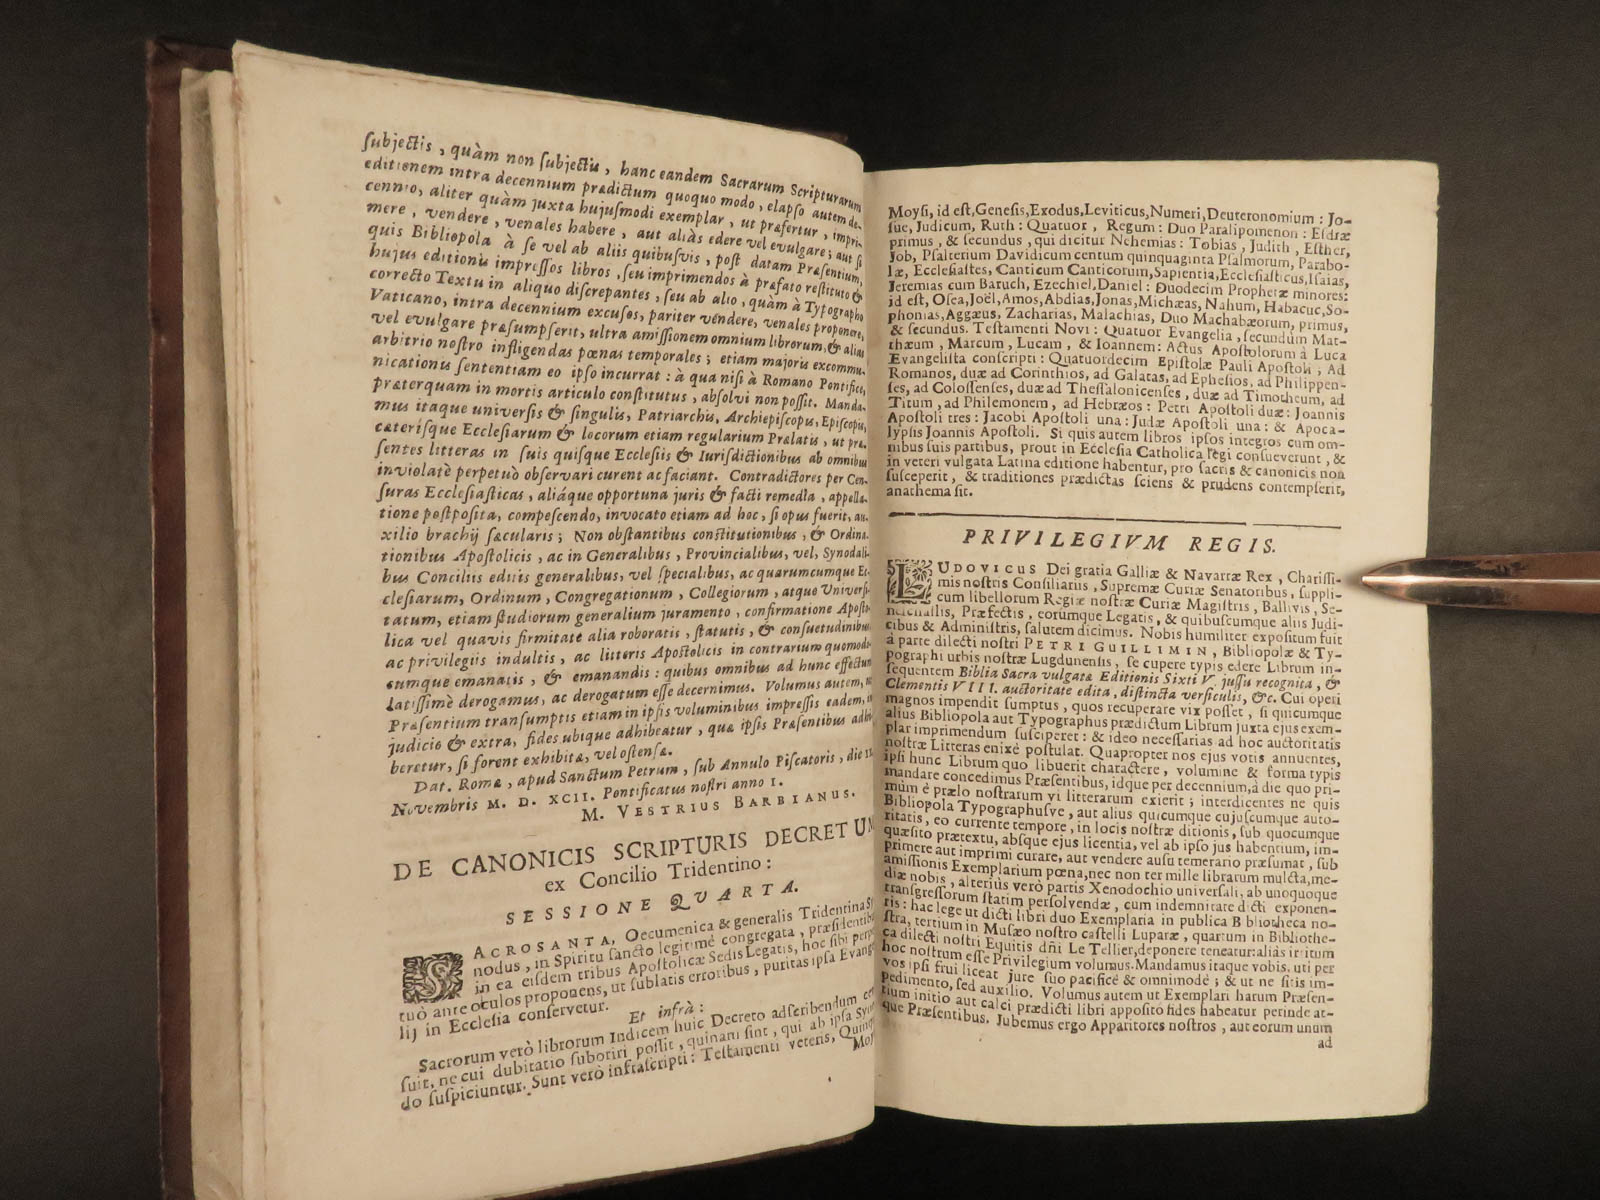 ſubjectis, quàm non ſubjectis, hanc eandem Sacrarum Scripturarum
editionem intra decennium prædictum quoquo modo, elapſo autem de-
cennio, aliter quàm juxta hujuſmodi exemplar, ut præfertur, impri-
mere, vendere, venales habere, aut aliàs edere vel evulgare; aut ſi
quis Bibliopola à ſe vel ab aliis quibuſvis, poſt datam Præſentium,
hujus editionis impreſſos libros, ſeu imprimendos à præfato reſtituto &
correcto Textu in aliquo diſcrepantes, ſeu ab alio, quàm à Typographo
Vaticano, intra decennium excuſos, pariter vendere, venales proponere,
vel evulgare præſumpſerit, ultra amiſſionem omnium librorum, & alias
arbitrio noſtro infligendas pœnas temporales; etiam majoris excommu-
nicationis ſententiam eo ipſo incurrat: à qua niſi à Romano Pontifice,
præterquam in mortis articulo conſtitutus, abſolvi non poſſit. Manda-
mus itaque univerſis & ſingulis, Patriarchis, Archiepiſcopis, Epiſcopis,
cæteriſque Eccleſiarum & locorum etiam regularium Prælatis, ut præ-
ſentes litteras in ſuis quiſque Eccleſiis & Iuriſdictionibus ab omnibus
inviolatè perpetuò obſervari curent ac faciant. Contradictores per Cen-
ſuras Eccleſiaſticas, aliáque opportuna juris & facti remedia, appella-
tione poſtpoſita, compeſcendo, invocato etiam ad hoc, ſi opus fuerit, au-
xilio brachij ſæcularis; Non obſtantibus conſtitutionibus, & Ordina-
tionibus Apoſtolicis, ac in Generalibus, Provincialibus, vel, Synodali-
bus Conciliis editis generalibus, vel ſpecialibus, ac quarumcumque Ec-
cleſiarum, Ordinum, Congregationum, Collegiorum, atque Univerſi-
tatum, etiam ſtudiorum generalium juramento, confirmatione Apoſto-
lica vel quavis firmitate alia roboratis, ſtatutis, & conſuetudinibus
ac privilegiis indultis, ac litteris Apoſtolicis in contrarium quomodo-
cumque emanatis, & emanandis: quibus omnibus ad hunc effectum
latiſſimè derogamus, ac derogatum eſſe decernimus. Volumus autem, ut
Præſentium tranſumptis etiam in ipſis voluminibus impreſſis eadem, in
judicio & extra, fides ubique adhibeatur, quæ ipſis Præſentibus adhi-
beretur, ſi forent exhibitæ, vel oſtenſæ.
Dat. Romæ, apud Sanctum Petrum, ſub Annulo Piſcatoris, die
Novembris M. D. XCII. Pontificatus noſtri anno I.
M. VESTRIUS BARBIANUS.
DE CANONICIS SCRIPTURIS DECRETUM
ex Concilio Tridentino:
SESSIONE QVARTA.
SACROSANTA, Oecumenica & generalis Tridentina Sy-
nodus, in Spiritu ſancto legitimè congregata, præſidentibus
in ea eiſdem tribus Apoſtolicæ Sedis Legatis, hoc ſibi perpe-
tuò ante oculos proponens, ut ſublatis erroribus, puritas ipſa Evange-
lij in Eccleſia conſervetur.
Et infrà:
Sacrorum verò librorum Indicem huic Decreto adſcribendum cen-
ſuit, ne cui dubitatio ſuboriri poſſit, quinam ſint, qui ab ipſa Syno-
do ſuſpiciuntur. Sunt verò infraſcripti: Teſtamenti veteris, Quinque
Moyſi
Moyſi, id eſt, Geneſis, Exodus, Leviticus, Numeri, Deuteronomium: Jo-
ſue, Judicum, Ruth: Quatuor, Regum: Duo Paralipomenon: Eſdræ
primus, & ſecundus, qui dicitur Nehemias: Tobias, Judith, Eſther,
Job, Pſalterium Davidicum centum quinquaginta Pſalmorum, Parabo-
læ, Eccleſiaſtes, Canticum Canticorum, Sapientia, Eccleſiaſticus, Iſaias,
Jeremias cum Baruch, Ezechiel, Daniel: Duodecim Prophetæ minores:
id eſt, Oſea, Joël, Amos, Abdias, Jonas, Michæas, Nahum, Habacuc, So-
phonias, Aggæus, Zacharias, Malachias, Duo Machabæorum, primus,
& ſecundus. Teſtamenti Novi: Quatuor Evangelia, ſecundùm Mat-
thæum, Marcum, Lucam, & Ioannem: Actus Apoſtolorum à Luca
Evangeliſta conſcripti: Quatuordecim Epiſtolæ Pauli Apoſtoli, Ad
Romanos, duæ ad Corinthios, ad Galatas, ad Epheſios, ad Philippen-
ſes, ad Coloſſenſes, duæ ad Theſſalonicenſes, duæ ad Timotheum, ad
Titum, ad Philemonem, ad Hebræos: Petri Apoſtoli duæ: Joannis
Apoſtoli tres: Jacobi Apoſtoli una: Judæ Apoſtoli una: & Apoca-
lypſis Joannis Apoſtoli. Si quis autem libros ipſos integros cum om-
nibus ſuis partibus, prout in Eccleſia Catholica legi conſueverunt, &
in veteri vulgata Latina editione habentur, pro ſacris & canonicis non
ſuſceperit, & traditiones prædictas ſciens & prudens contempſerit,
anathema ſit.
PRIVILEGIVM REGIS.
LUDOVICUS Dei gratia Galliæ & Navarræ Rex, Chariſſi-
mis noſtris Conſiliariis, Supremæ Curiæ Senatoribus, ſuppli-
cum libellorum Regiæ noſtræ Curiæ Magiſtris, Ballivis, Se-
neſchallis, Præfectis, eorumque Legatis, & quibuſcumque aliis Judi-
cibus & Adminiſtris, ſalutem dicimus. Nobis humiliter expoſitum fuit
à parte dilecti noſtri PETRI GUILLIMIN, Bibliopolæ & Ty-
pographi urbis noſtræ Lugdunenſis, ſe cupere typis edere Librum in-
ſequentem Biblia Sacra vulgatæ Editionis Sixti V. juſſu recognita, &
Clementis VIII. auctoritate edita, diſtincta verſiculis, &c. Cui operi
magnos impendit ſumptus, quos recuperare vix poſſet, ſi quicumque
alius Bibliopola aut Typographus prædictum Librum juxta ejus exem-
plar imprimendum ſuſciperet: & ideo neceſſarias ad hoc auctoritatis
noſtræ Litteras enixè poſtulat. Quapropter nos ejus votis annuentes,
ipſi hunc Librum quo libuerit charactere, volumine & forma typis
mandare concedimus Præſentibus, idque per decennium, à die quo pri-
mùm è prælo noſtrarum vi litterarum exierit; interdicentes ne quis
Bibliopola Typographuſve, aut alius quicumque cujuſcumque auto-
ritatis, eo currente tempore, in locis noſtræ ditionis, ſub quocumque
quæſito prætextu, abſque ejus licentia, vel ab ipſo jus habentium, im-
primere aut imprimi curare, aut vendere auſu temerario præſumat, ſub
amiſſionis Exemplarium pœna, nec non ter mille librarum mulcta, me-
diæ nobis, alterius verò partis Xenodochio univerſali, ab unoquoque
tranſgreſſorum ſtatim perſolvendæ, cum indemnitate dicti exponen-
tis: hac lege ut dicti libri duo Exemplaria in publica Bibliotheca no-
ſtra, tertium in Muſæo noſtro caſtelli Luparæ, quartum in Bibliothe-
ca dilecti noſtri Equitis dñi Le Tellier, deponere teneatur: aliàs irritum
hoc noſtrum eſſe Privilegium volumus. Mandamus itaque vobis, uti per
vos ipſi frui liceat jure ſuo pacificè & omnimodè; & ut ne ſitis im-
pedimento, ſed auxilio. Volumus autem ut Exemplari harum Præſen-
tium initio aut calci prædicti libri appoſito fides habeatur perinde at-
que Præſentibus. Jubemus ergo Apparitores noſtros, aut eorum unum
ad